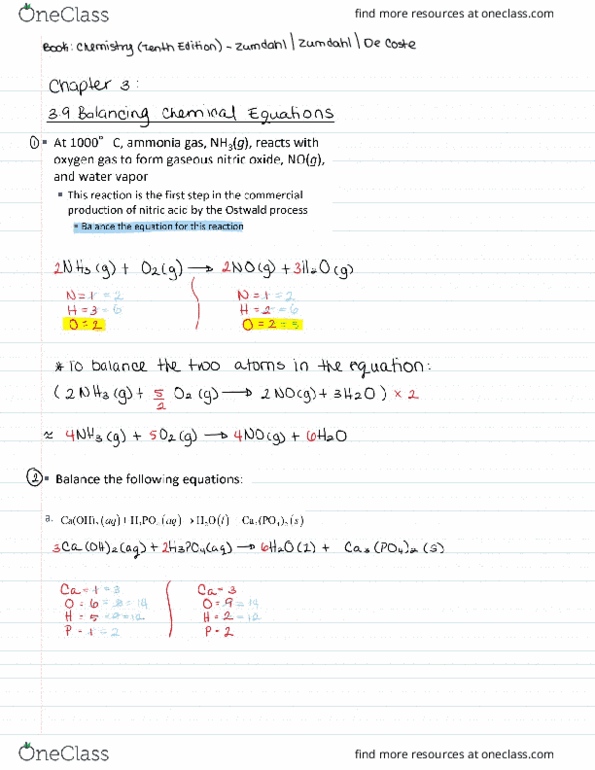 OneClass
find more resources at oneclass.com
Book: Chemistry (Tenth Edition) - Zumdahl | Zumdahl | De Coste
Chapter 3:
3.9 Balancing Chemical Equations
① At 1000° C, ammonia gas, NH₃(g), reacts with
oxygen gas to form gaseous nitric oxide, NO(g),
and water vapor
▪ This reaction is the first step in the commercial
production of nitric acid by the Ostwald process
▪ Balance the equation for this reaction
2NH₃(g) + O₂(g) → 2NO(g) + 3H₂O(g)
N = 1 = 2 N = 1 = 2
H = 3 = 6 H = 2 = 6
O = 2 O = 2 = 5
* To balance the two atoms in the equation:
(2NH₃(g) + 5/2 O₂(g) → 2NO(g) + 3H₂O) × 2
≈ 4NH₃(g) + 5O₂(g) → 4NO(g) + 6H₂O
② Balance the following equations:
a. Ca(OH)₂(aq) + H₃PO₄(aq) → H₂O(l) Ca₃(PO₄)₂(s)
3Ca(OH)₂(aq) + 2H₃PO₄(aq) → 6H₂O(l) + Ca₃(PO₄)₂(s)
Ca = 1 = 3 Ca = 3
O = 6 = 14 O = 9 = 14
H = 5 = 12 H = 2 = 12
P = 1 = 2 P = 2
OneClass
find more resources at oneclass.com